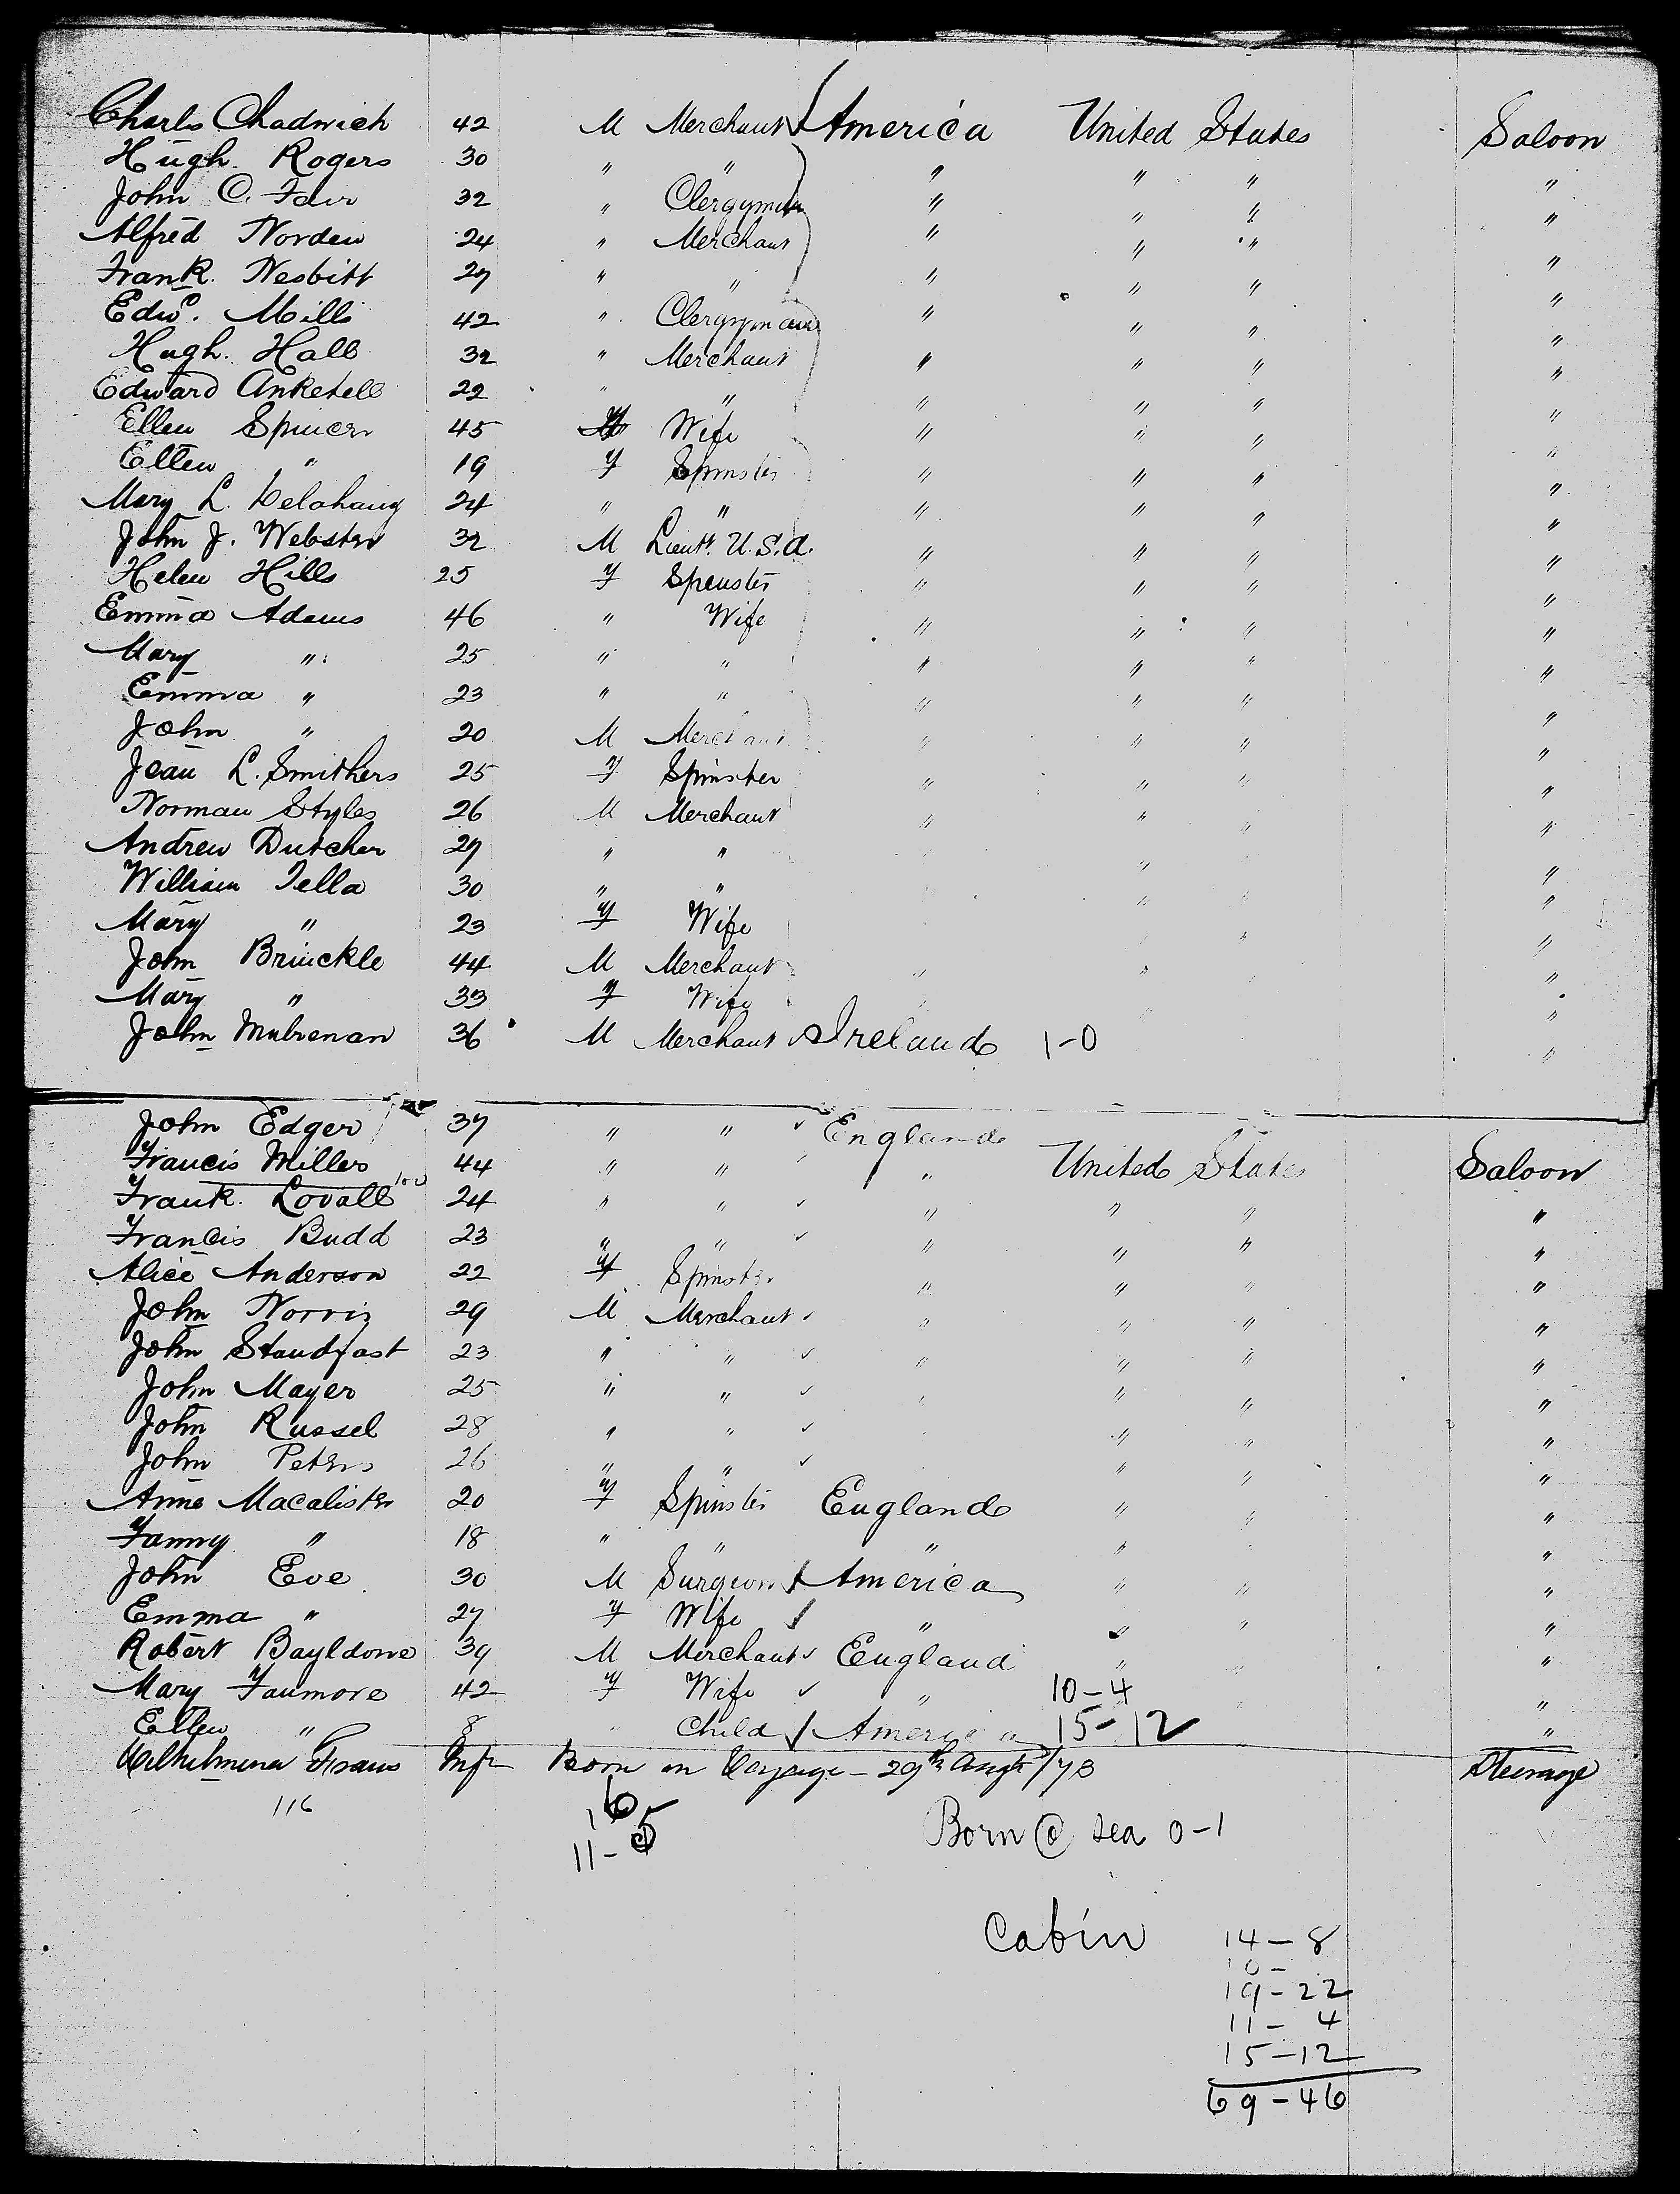 Charls Chadwick 42 M Merchant America United States Saloon
Hugh Rogers 30 " " " " " "
John C. Fair 32 " Clergyman " " " "
Alfred Norden 24 " Merchant " " " "
Frank Nesbitt 29 " " " " " "
Edwd. Mills 42 " Clergyman " " " "
Hugh Hall 32 " Merchant " " " "
Edward Anketell 22 " " " " " "
Ellen Spincer 45 Wife " " " "
Ellen " 19 F Spinster " " " "
Mary L. Delahany 24 " " " " " "
John J. Webster 32 M Lieut. U.S.A. " " " "
Helen Hills 25 F Spenster " " " "
Emma Adams 46 " Wife " " " "
Mary " 25 " " " " " "
Emma " 23 " " " " " "
John " 20 M Merchant " " " "
Jean L. Smithers 25 F Spinster " " " "
Norman Styles 26 M Merchant " " " "
Andrew Dutcher 29 " " " "
William Tella 30 " " " "
Mary " 23 F Wife " "
John Brinckle 44 M Merchant " " "
Mary " 33 F Wife "
John Mulrenan 36 M Merchant Ireland 1-0 "
John Edger 37 " " England
Francis Miller 44 " " " United States Saloon
Frank Lovall 24 " " " " " "
Francis Budd 23 " " " " " "
Alice Anderson 22 F Spinster " " " "
John Norris 29 M Merchant " " " "
John Standfast 23 " " " " " "
John Mayer 25 " " " " " "
John Russel 28 " " " " "
John Peters 26 " " " " "
Anne Macalister 20 F Spinster England " " "
Fanny " 18 " " " " "
John Eve 30 M Surgeon America " " "
Emma " 27 F Wife " " " "
Robert Bayldone 39 M Merchant England " " "
Mary Fanmore 42 F Wife " 10-4 "
Ellen " 8 " Child America 15-12 "
Wilhelmina Frans Inft Born on Voyage - 29th Augt/78 Steerage
116
16
11-5
Born @ sea 0-1
Cabin 14-8
10-
19-22
11-4
15-12
69-46